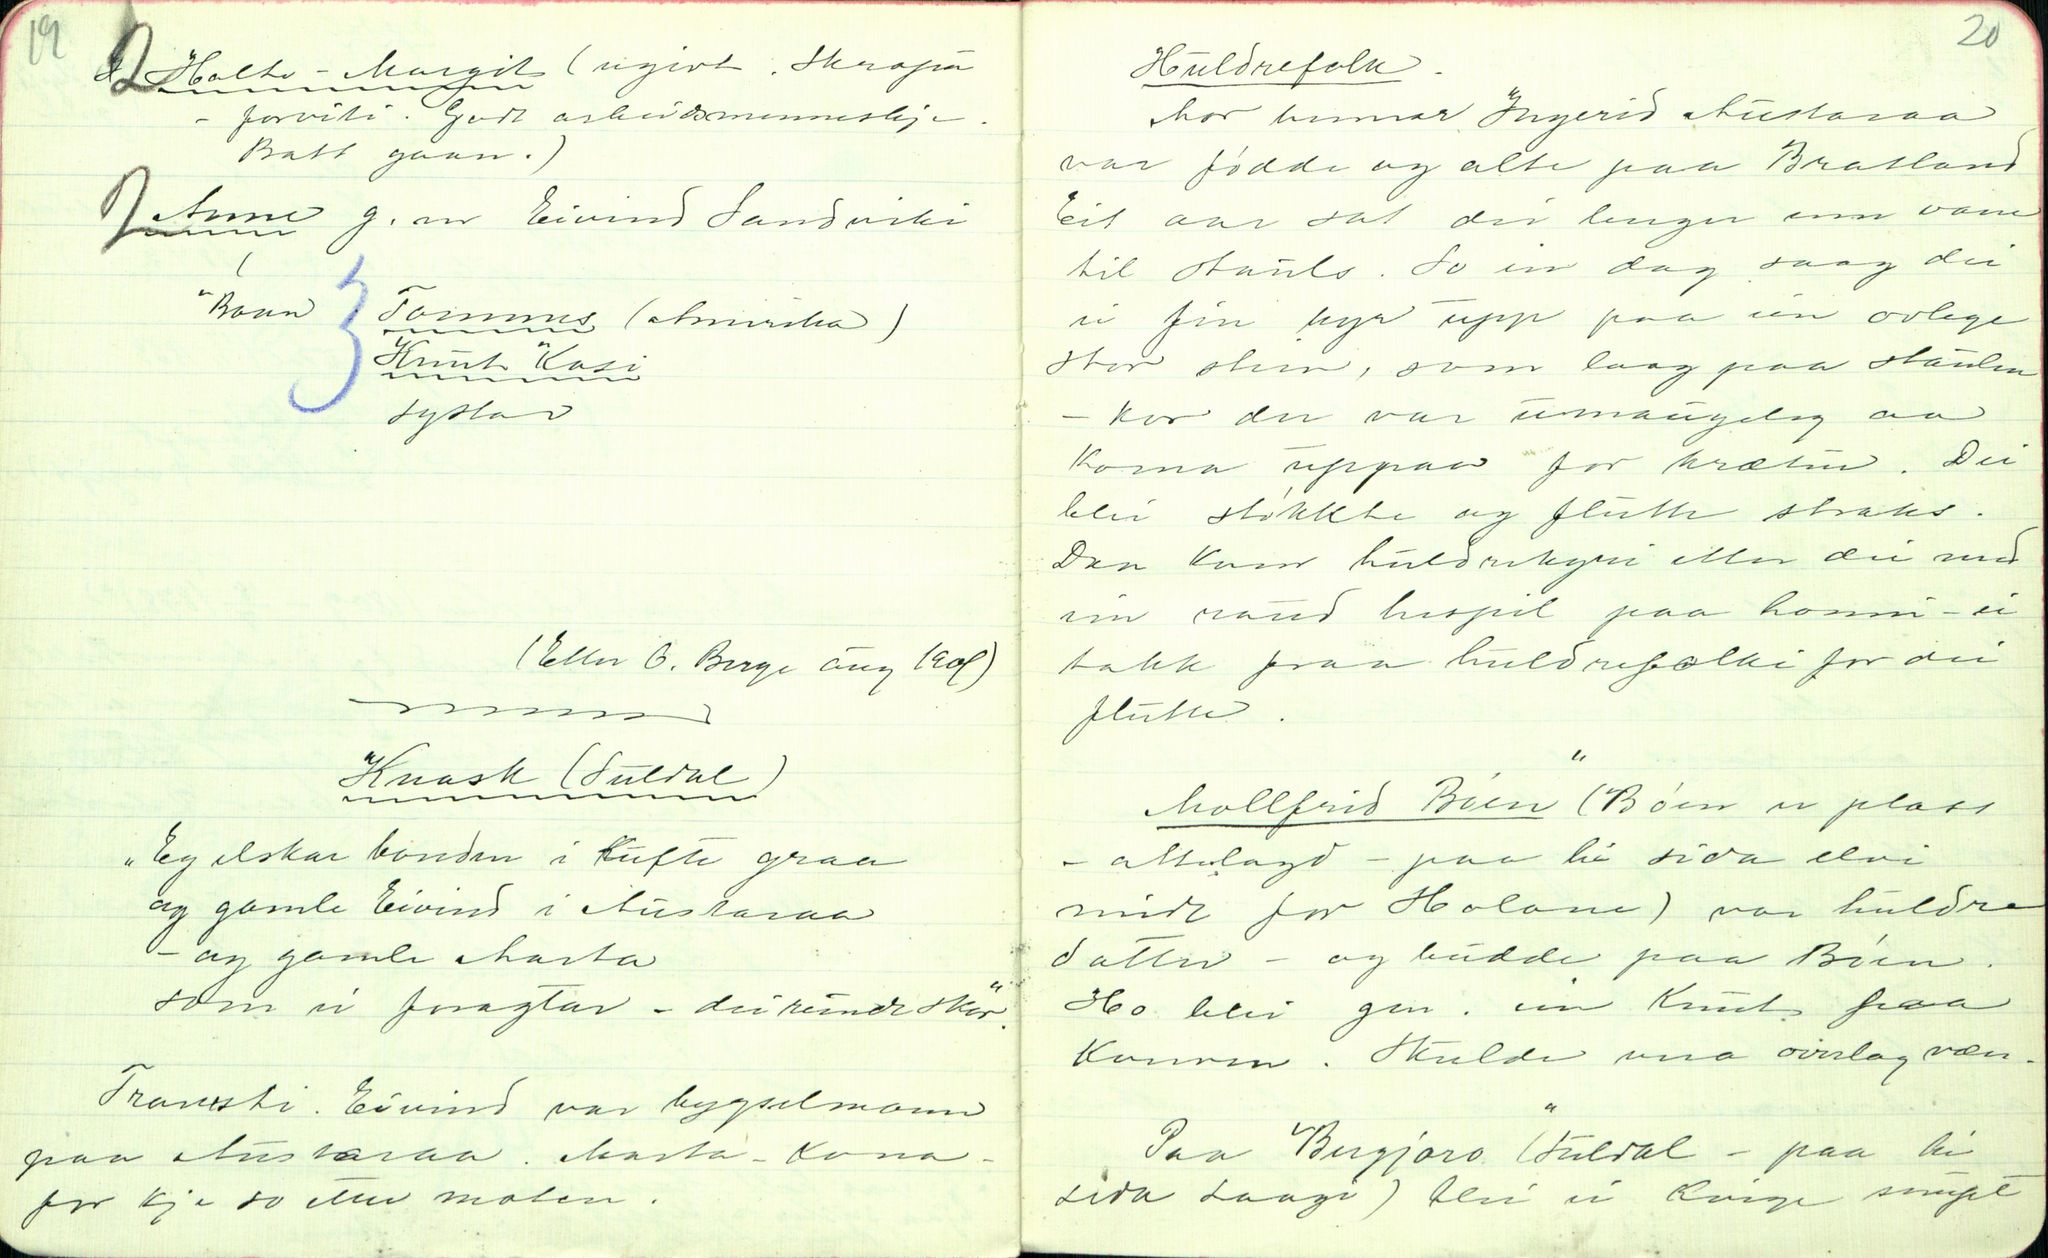 19
2 Holte-Margit (ugivt. Skrapa
- forviti. Godt arbeidsmenneskje.
Batt gaan.)
2 Anne g. m Eivind Sandviki
Born 3 Tommus (Amerika)
Knut Kasi
systar
(Etter O. Berge aug 19)
Knask (Suldal)
"Eg elskar bonden i kufte graa
og gamle Eivind i Austaraa
- og gamle Marta
som ei foragtar - dei
Eivind var bygselmann
paa Austaraa. Marta - kona -
for kje so etter maten.
20
Huldrefolk.
Mor hennar Ingerid Austaraa
var fødde og alte paa Bratland
Eit aar sat dei lenger enn vane
til stauls. So ein dag saag dei
ei fin kyr upp paa ein ovlege
stor stein, som laag paa staulen
- kor der var umaugeleg aa
koma uppaa for krætur. Dei
blei støkkte og flutte straks.
Daa kom huldrekyri etter dei med
ein raud hespil paa honni - ei
takk fraa huldrefolki for dei
flutte.
Mollfrid Bøen (Bøen er plass
- attelagd - paa hi sida elvi
midt for Holane) var huldre
datter - og budde paa Bøen.
Ho blei gm. ein Knut fraa
Kvoven. Skulde vera overlag væn.
Paa Bergjoro (Suldal - paa hi
sida Laagi) blei ei kvige